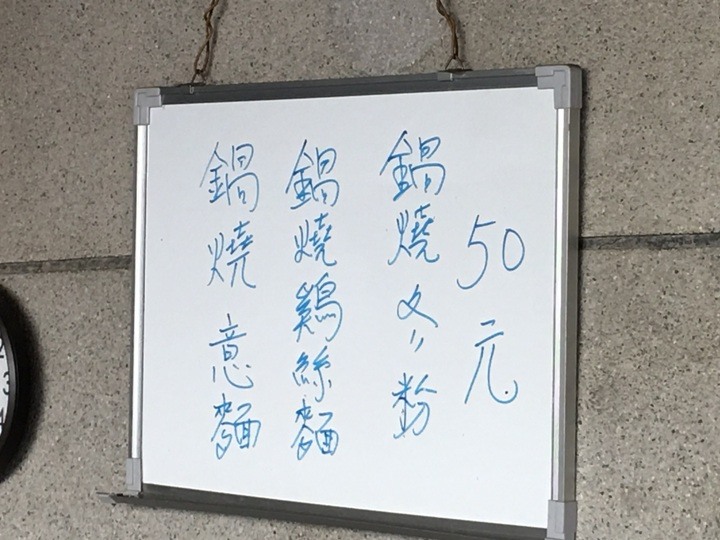 50元
鍋燒冬粉
鍋燒鷄絲麵
鍋燒意麵